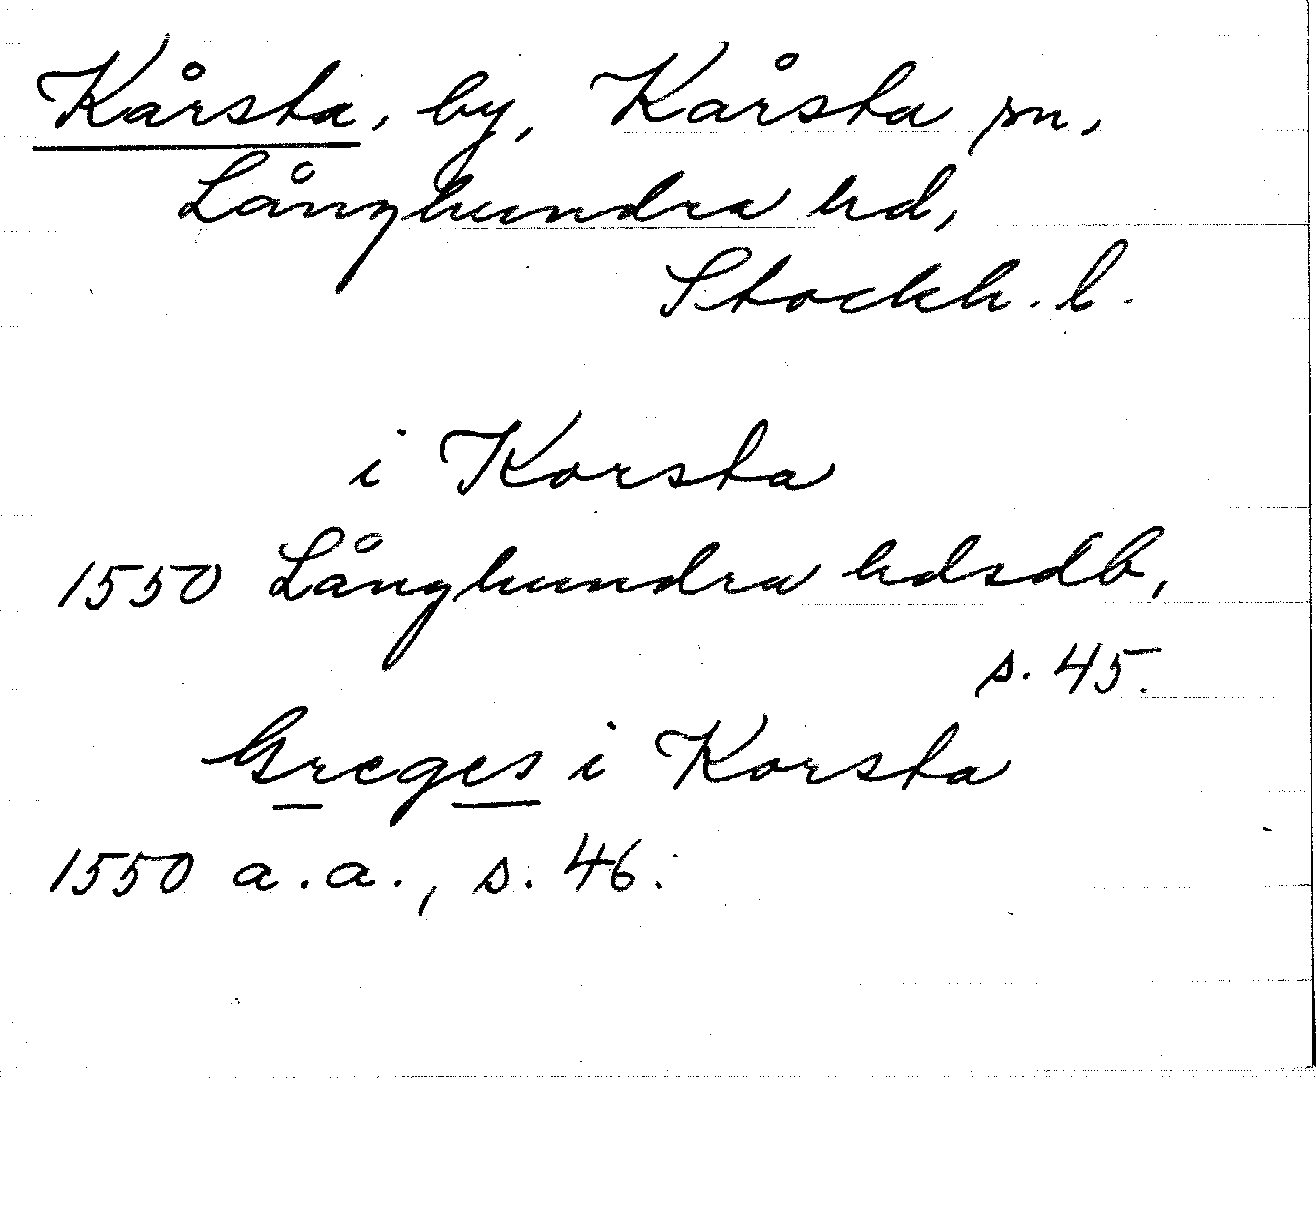 Kårsta, by, Kårsta sn,
Långhundra hd,
Stockh. l.
i Korsta
1550 Långhundra hdsdb,
s. 45.
Greges i Korsta
1550 a.a., s. 46.